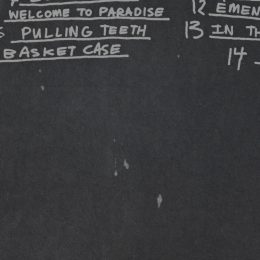 WELCOME TO PARADISE
PULLING TEETH
BASKET CASE
12
13 IN
14